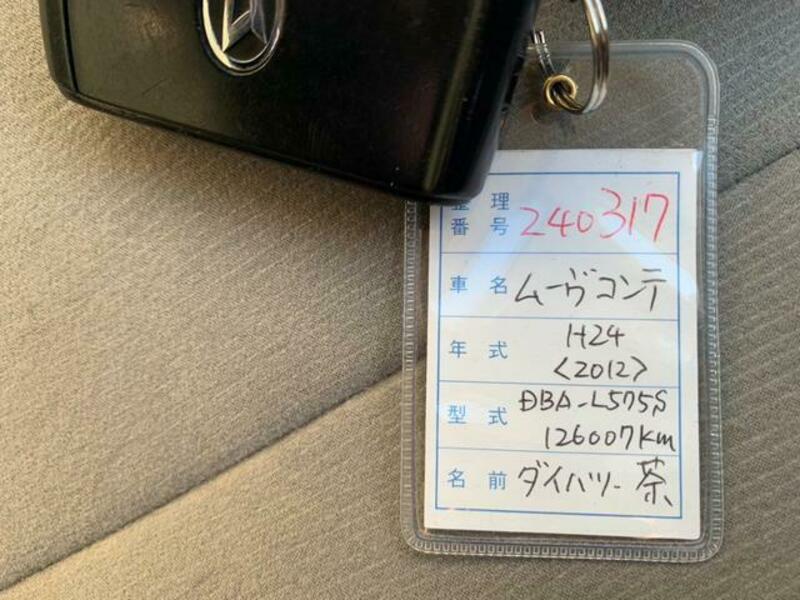 整理
番号 240317
車名 ムーヴコンテ
年式 H24
<2012>
型式 DBA-L575S
126007km
名前 ダイハツ- 茶